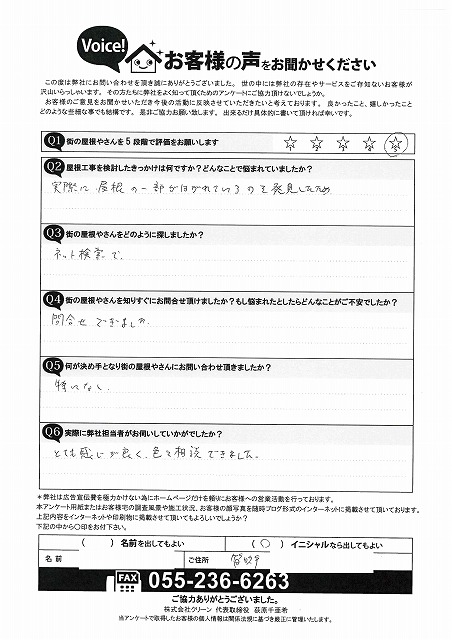 Voice! お客様の声をお聞かせください
この度は弊社にお問い合わせを頂き誠にありがとうございました。 世の中には弊社の存在やサービスをご存知ないお客様が
沢山いらっしゃいます。 その方たちに弊社をよく知って頂くためのアンケートにご協力頂けないでしょうか。
お客様のご意見をお聞かせいただき今後の活動に反映させていただきたいと考えております。 良かったこと、嬉しかったこと
どのような些細な事でも結構です。 是非ご協力お願い致します。 出来るだけ具体的に書いて頂ければ幸いです。
Q1 街の屋根やさんを5段階で評価をお願いします
1 2 3 4 5
Q2 屋根工事を検討したきっかけは何ですか？どんなことで悩まれていましたか？
実際に屋根の一部がはがれているのを発見したため
Q3 街の屋根やさんをどのように探しましたか？
ネット検索で.
Q4 街の屋根やさんを知りすぐにお問合せ頂けましたか？もし悩まれたとしたらどんなことがご不安でしたか？
問合せできました.
Q5 何が決め手となり街の屋根やさんにお問い合わせ頂きましたか？
特になし.
Q6 実際に弊社担当者がお伺いしていかがでしたか？
とても感じが良く、色々相談できました.
＊弊社は広告宣伝費を極力かけない為にホームページだけを頼りにお客様への営業活動を行っております。
本アンケート用紙またはお客様宅の調査風景や施工状況、お客様の顔写真を随時ブログ形式のインターネットに掲載させて頂いております。
上記内容をインターネットや印刷物に掲載させて頂いてもよろしいでしょうか？
下記の中から〇印をお付下さい。
( ) 名前を出してもよい (○) イニシャルなら出してもよい
名前 ご住所
FAX 055-236-6263
ご協力ありがとうございました。
株式会社クリーン 代表取締役 荻原千亜希
当アンケートで取得したお客様の個人情報は関係法規に基づき厳正に管理いたします。